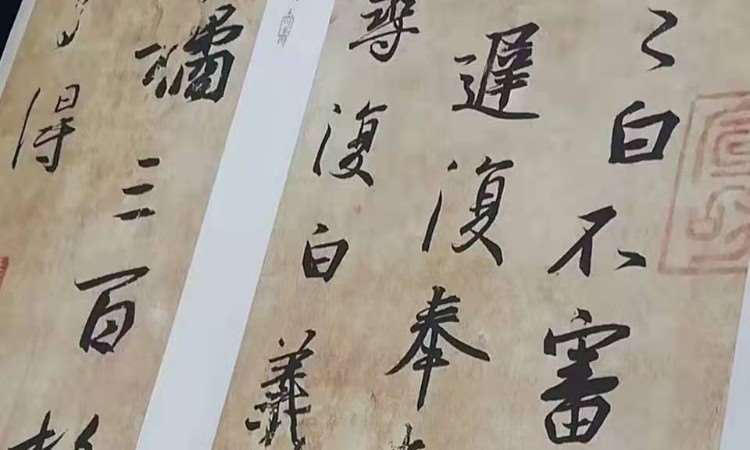 之白不審
遲復奉
尋復白羲
橘三百
得